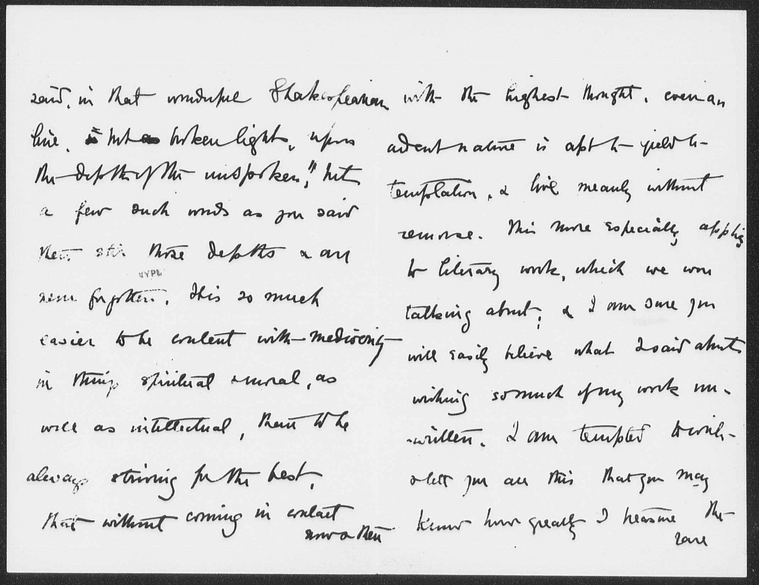 said, in that wonderful Shakespearian
line, "is but as broken lights, upon
the depth of the unspoken," but
a few such words as you said
then stir those depths & are
NYPL
never forgotten. It is so much
easier to be content with mediocrity
in things spiritual & moral, as
well as intellectual, than to be
always striving for the best,
that without coming in contact
now & then
with the highest thought, even an
ardent nature is apt to yield to
temptation, & live meanly without
remorse. This more especially applies
to literary work, which we were
talking about; & I am sure you
will easily believe what I said about
wishing so much of my work un-
written. I am tempted to write
& tell you all this that you may
know how greatly I treasure the
rare